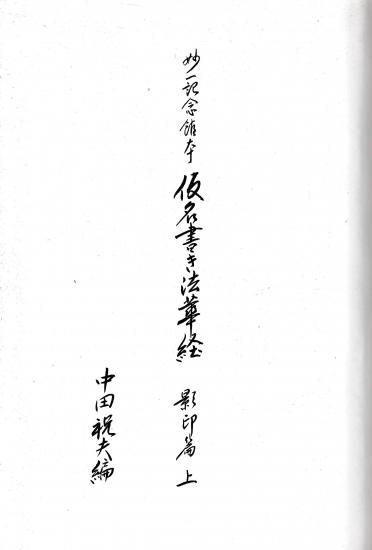 妙一記念館本 仮名書き法華経 影印篇 上
中田祝夫編